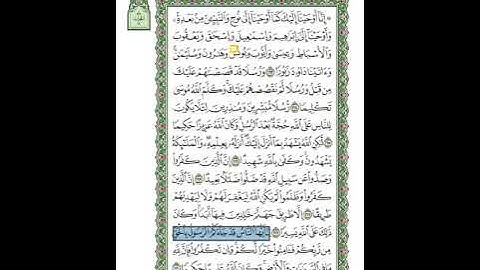 ۞ إِنَّا أَوْحَيْنَا إِلَيْكَ كَمَا أَوْحَيْنَا إِلَىٰ نُوحٍ وَالنَّبِيِّينَ مِنْ بَعْدِهِ
وَأَوْحَيْنَا إِلَىٰ إِبْرَاهِيمَ وَإِسْمَاعِيلَ وَإِسْحَاقَ وَيَعْقُوبَ
وَالْأَسْبَاطِ وَعِيسَىٰ وَأَيُّوبَ وَيُونُسَ وَهَارُونَ وَسُلَيْمَانَ
وَآتَيْنَا دَاوُودَ زَبُورًا ۝ وَرُسُلًا قَدْ قَصَصْنَاهُمْ عَلَيْكَ
مِنْ قَبْلُ وَرُسُلًا لَمْ نَقْصُصْهُمْ عَلَيْكَ وَكَلَّمَ اللَّهُ مُوسَىٰ
تَكْلِيمًا ۝ رُسُلًا مُبَشِّرِينَ وَمُنْذِرِينَ لِئَلَّا يَكُونَ
لِلنَّاسِ عَلَى اللَّهِ حُجَّةٌ بَعْدَ الرُّسُلِ وَكَانَ اللَّهُ عَزِيزًا حَكِيمًا
۝ لَٰكِنِ اللَّهُ يَشْهَدُ بِمَا أَنْزَلَ إِلَيْكَ أَنْزَلَهُ بِعِلْمِهِ وَالْمَلَائِكَةُ
يَشْهَدُونَ وَكَفَىٰ بِاللَّهِ شَهِيدًا ۝ إِنَّ الَّذِينَ كَفَرُوا
وَصَدُّوا عَنْ سَبِيلِ اللَّهِ قَدْ ضَلُّوا ضَلَالًا بَعِيدًا ۝ إِنَّ الَّذِينَ
كَفَرُوا وَظَلَمُوا لَمْ يَكُنِ اللَّهُ لِيَغْفِرَ لَهُمْ وَلَا لِيَهْدِيَهُمْ
طَرِيقًا ۝ إِلَّا طَرِيقَ جَهَنَّمَ خَالِدِينَ فِيهَا أَبَدًا وَكَانَ
ذَٰلِكَ عَلَى اللَّهِ يَسِيرًا ۝ يَا أَيُّهَا النَّاسُ قَدْ جَاءَكُمُ الرَّسُولُ بِالْحَقِّ
مِنْ رَبِّكُمْ فَآمِنُوا خَيْرًا لَكُمْ وَإِنْ تَكْفُرُوا فَإِنَّ لِلَّهِ
مَا فِي السَّمَاوَاتِ وَالْأَرْضِ وَكَانَ اللَّهُ عَلِيمًا حَكِيمًا